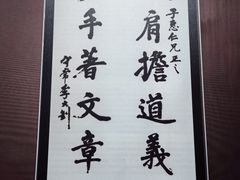 子惠仁兄正之
肩擔道義
手著文章
守常李大釗